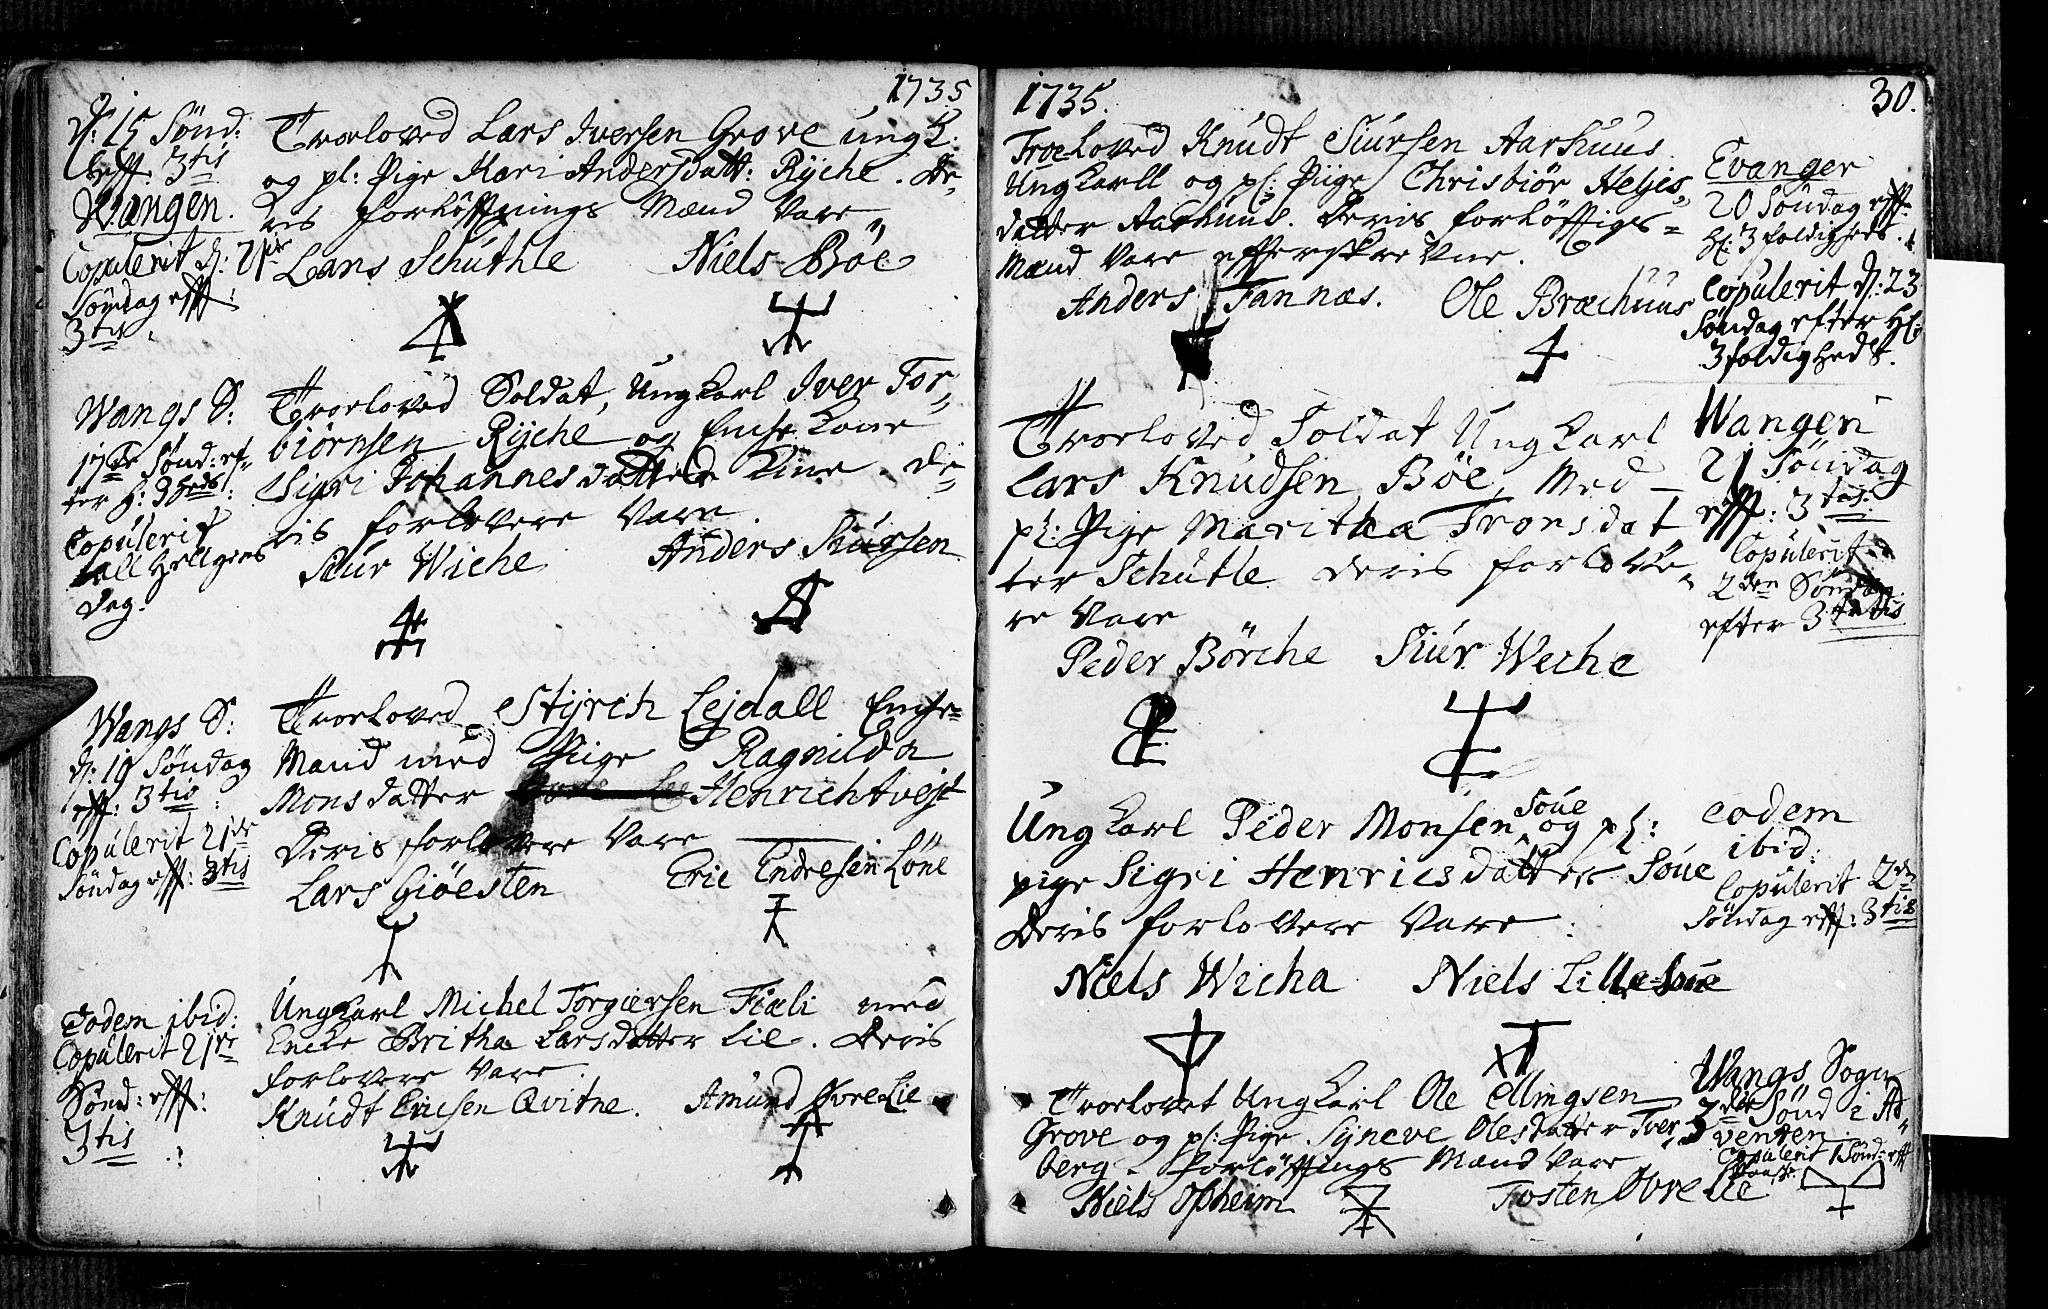 1735
d: 15 Sønd:
eff: 3tis
Wangen.
Copulerit d: 21de
Søndag eff:
3tis.
Troeloved Lars Iversen Grove ungk:
og pl: Pige Mari Andersdatt: Ryche. De-
ris forløffnings Mænd vare
Lars Schuthle Niels Böe
Wangs S:
17de Sønd: ef-
ter H: 3heds:
Copulerit
all Helgens
Dag.
Troeloved Soldat, Ungkarl Iver Tor-
biørnsen Ryche og Encke Kone
Sigri Johannesdatter Lüne. De-
ris forlovere vare.
Siur Wiche Anders Siursen
Wangs S:
d: 19 Søndag
eff: 3tis:
Copulerit 21de
Søndag eff: 3tis
Troeloved Styrch Lejdall Encke-
Mand med Pige Ragnilda
Monsdatter Henrichtvejt
Deris forlovere vare
Lars Giöesten Eric Endresen Löne
Eodem ibid:
Copulerit 21de
Sønd: eff:
3tis
Ungkarl Michel Torgiersen Fiæli med
Encke Britha Larsdatter Lie. Deris
forlovere vare.
Knudt Ericsen Qvitne. Amund Øvre Lie
1735.
30.
Troeloved Knudt Siursen Aarhuus
Ungkarll og pl: Piige Christiör Heljes-
datter Aarhuus. Deris forløffigs-
Mænd vare efterskrevne.
Anders Fannæs. Ole Bræchuus
Evanger
20 Søndag eff:
Hl: 3foldigheds.
Copulerit d: 23
Søndag efter Hl:
3foldigheds.
Troeloved Soldat Ungkarl
Lars Knudsen Böe, Med
pl: Pige Maritha Tronsdat
ter Schutle deris forlove-
re vare
Peder Börche Siur Weche
Wangen
21 Søndag
eff: 3tis:
Copulerit
2den Søndag
efter 3tatis
Ungkarl Peder Monsen Soue og pl:
pige Sigri Henricsdatter Soue
Deris forlovere vare:
Niels Wicha Niels Lille Soue
eodem
ibid:
Copulerit 2den
Søndag eff: 3tis
Troelovet Ungkarl Ole Elingsen
Grove og pl: Pige Syneve Olesdatter Tver
berg. forløffnings Mænd vare
Niels Opheim Tosten Øvre Lie
Wangs Sogn
3die Sønd i Ad-
venten.
Copulerit 1 Sønd: eff
Paask: